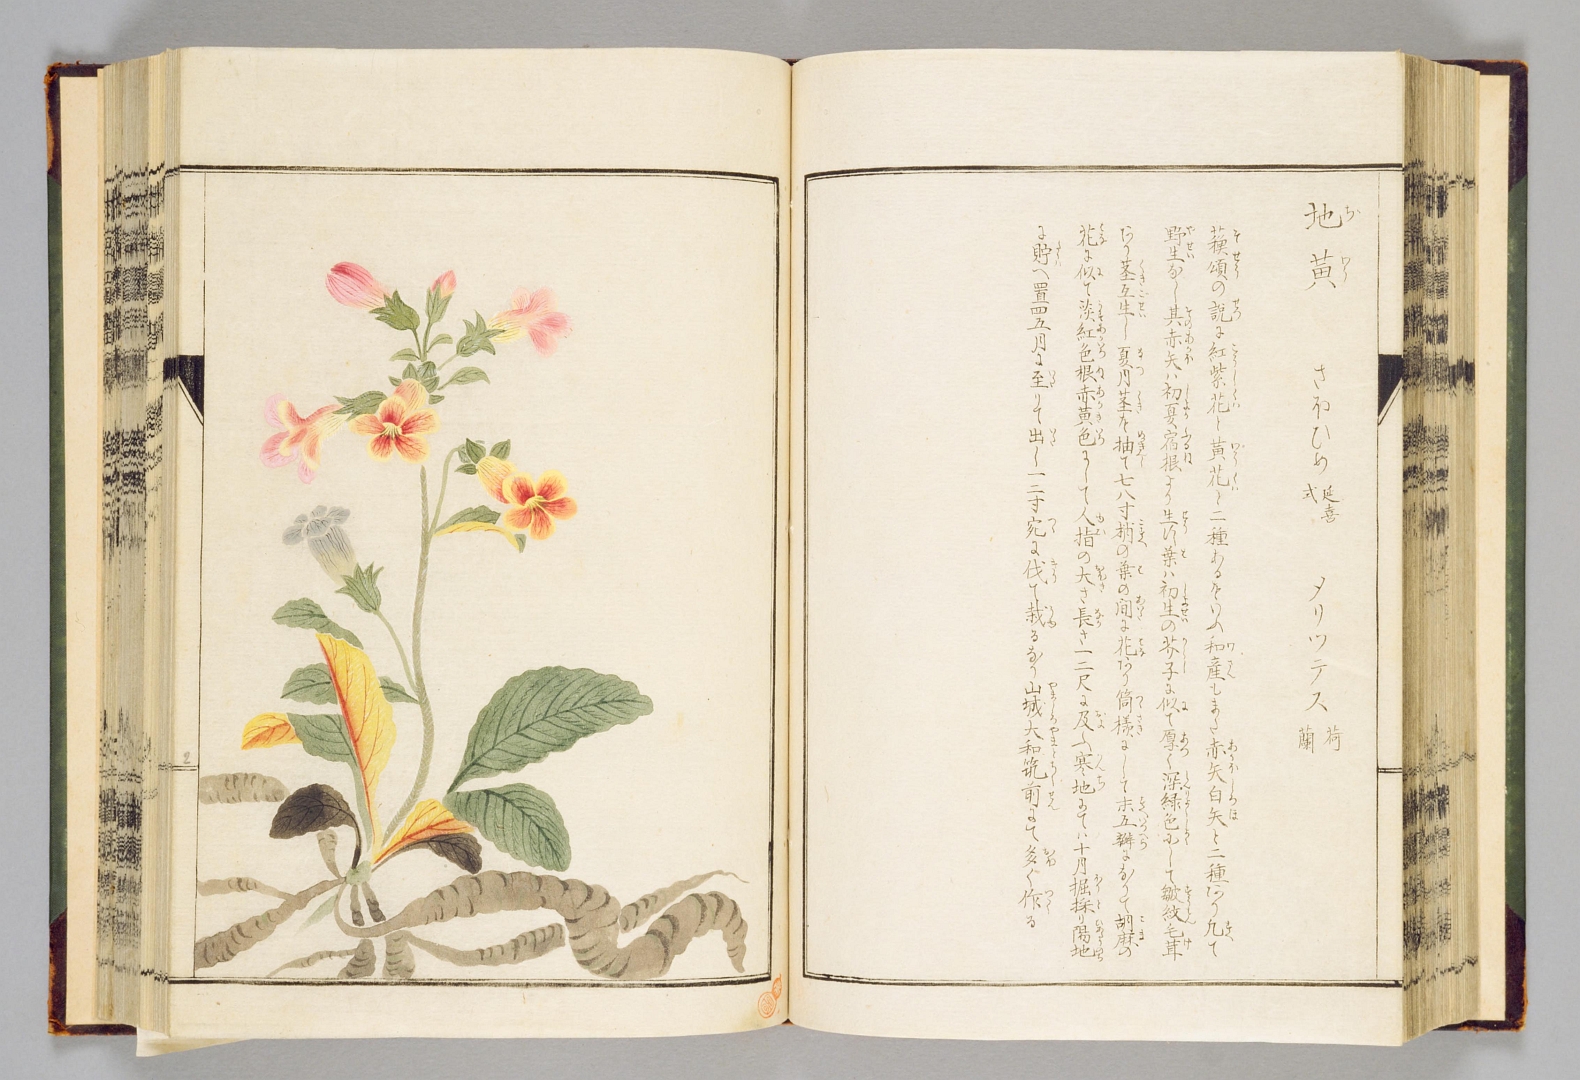 地黄
さほひめ 延喜式 メリツテス 荷蘭
蘓頌の説に紅紫花と黄花と二種あるをいへ和産もまた赤矢白矢と二種あり凡て
野生なし其赤矢ハ初夏宿根より生ず葉ハ初生の芥子に似て厚く深緑色にして皺紋毛茸
あり茎互生し夏月茎を抽て七八寸梢の葉の间に花あり筒様にして末五瓣になりて胡麻の
花に似て淡紅色根赤黄色にして人指の大さ長さ一二尺に及ふ寒地にてハ十月掘採り陽地
に貯へ置四五月に至りて出し一二寸宛に伐て栽るなり山城大和筑前にて多く作る
2